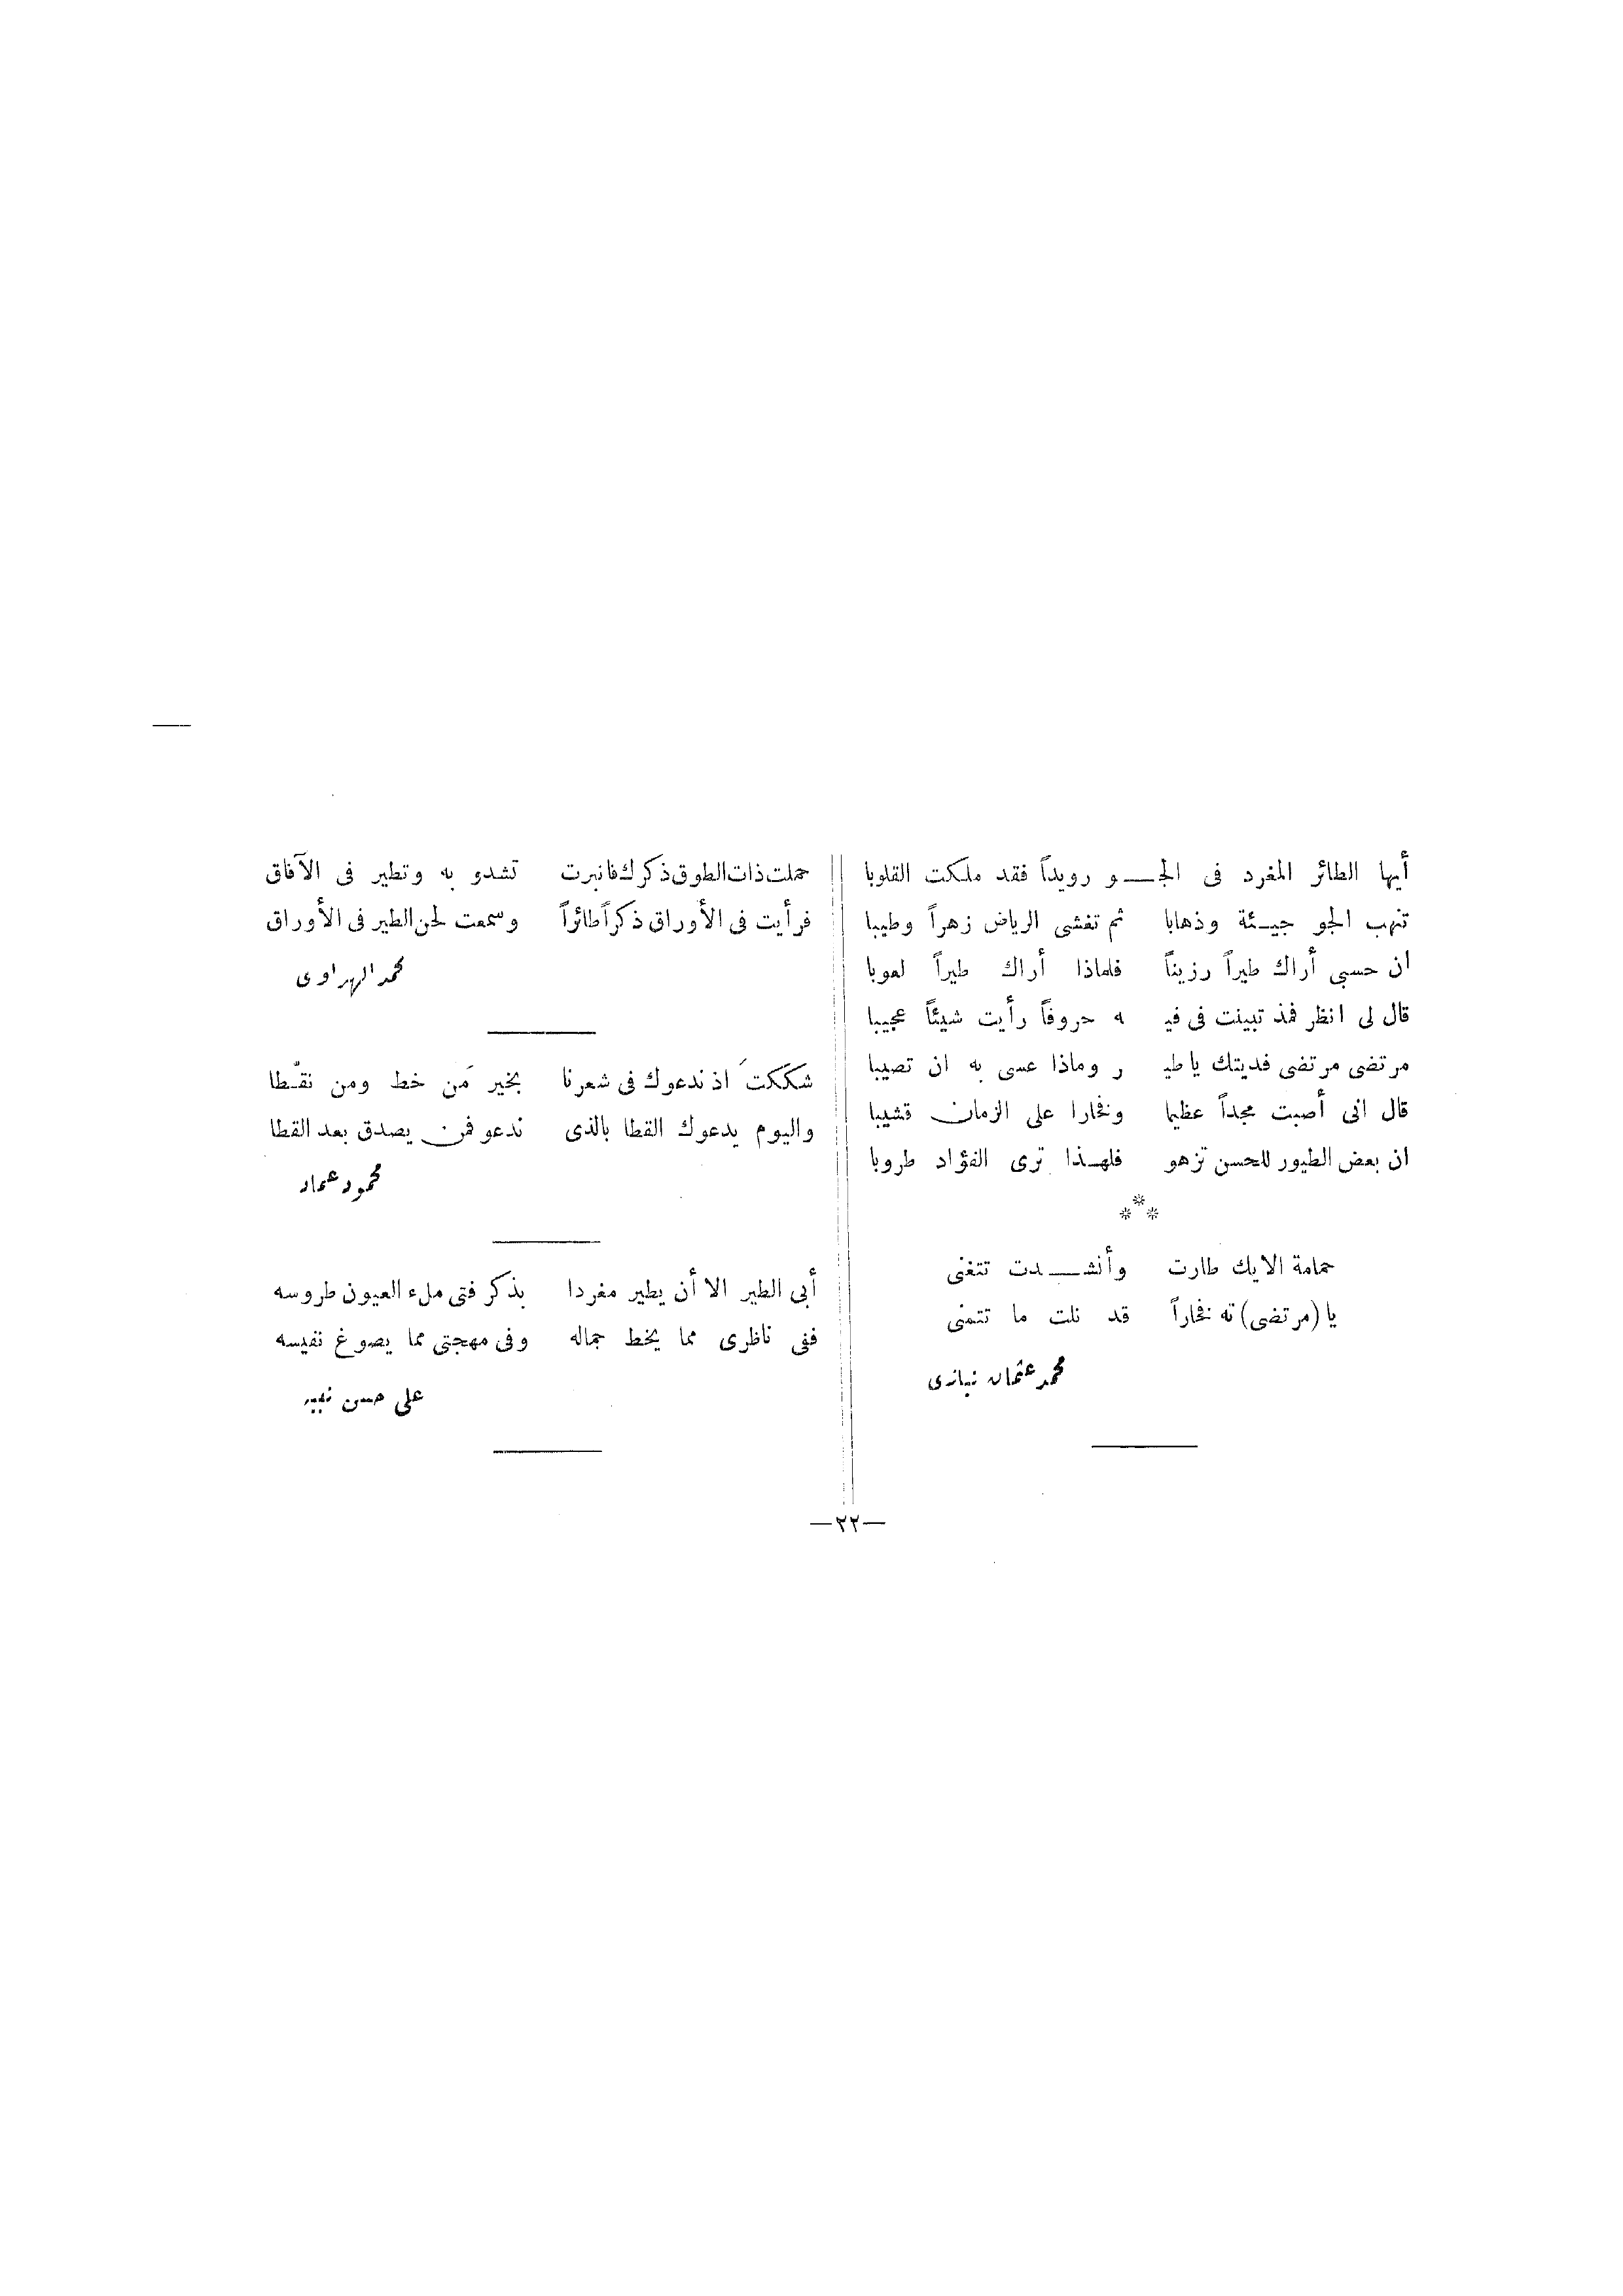 أيها الطائر المغرد فى الجــو رويداً فقد ملكت القلوبا
تنهب الجو جيــئة وذهابا ثم تفشى الرياض زهراً وطيبا
ان حسبى أراك طيراً رزيناً فلماذا أراك طيراً لعوبا
قال لى انظر فمذ تبينت فى فيـ ـه حروفاً رأيت شيئاً عجيبا
مرتضى مرتضى فديتك يا طيـ ـر وماذا عسى به ان تصيبا
قال انى أصبت مجداً عظيما وفخارا على الزمان قشيبا
ان بعض الطيور للحسن تزهو فلهــذا ترى الفؤاد طروبا
***
حمامة الايك طارت وأنشــدت تتغنى
يا (مرتضى) ته فخاراً قد نلت ما تتمنى
محمد عثمان نيازى
حملت ذات الطوق ذكرك فانبرت تشدو به وتطير فى الآفاق
فرأيت فى الأوراق ذكراً طائراً وسمعت لحن الطير فى الأوراق
محمد الهراوى
شكَكتَ اذ ندعوك فى شعرنا بخير مَن خط ومن نقـّطا
واليوم يدعوك القطا بالذى ندعو فمن يصدق بعد القطا
محمود عماد
أبى الطير الا أن يطير مغردا بذكر فتى ملء العيون طروسه
ففى ناظرى مما يخط جماله وفى مهجتى مما يصوغ نفيسه
على حسن
—٢٢—